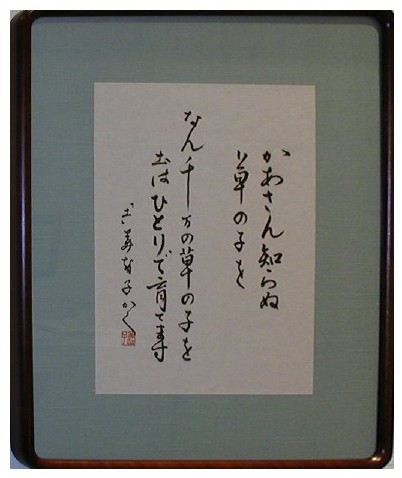 かあさん知らぬ
草の子を
なん千万の草の子を
土はひとりで育てます
子かく